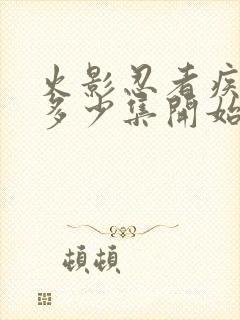 火影忍者疾
多少集開始
頓頓